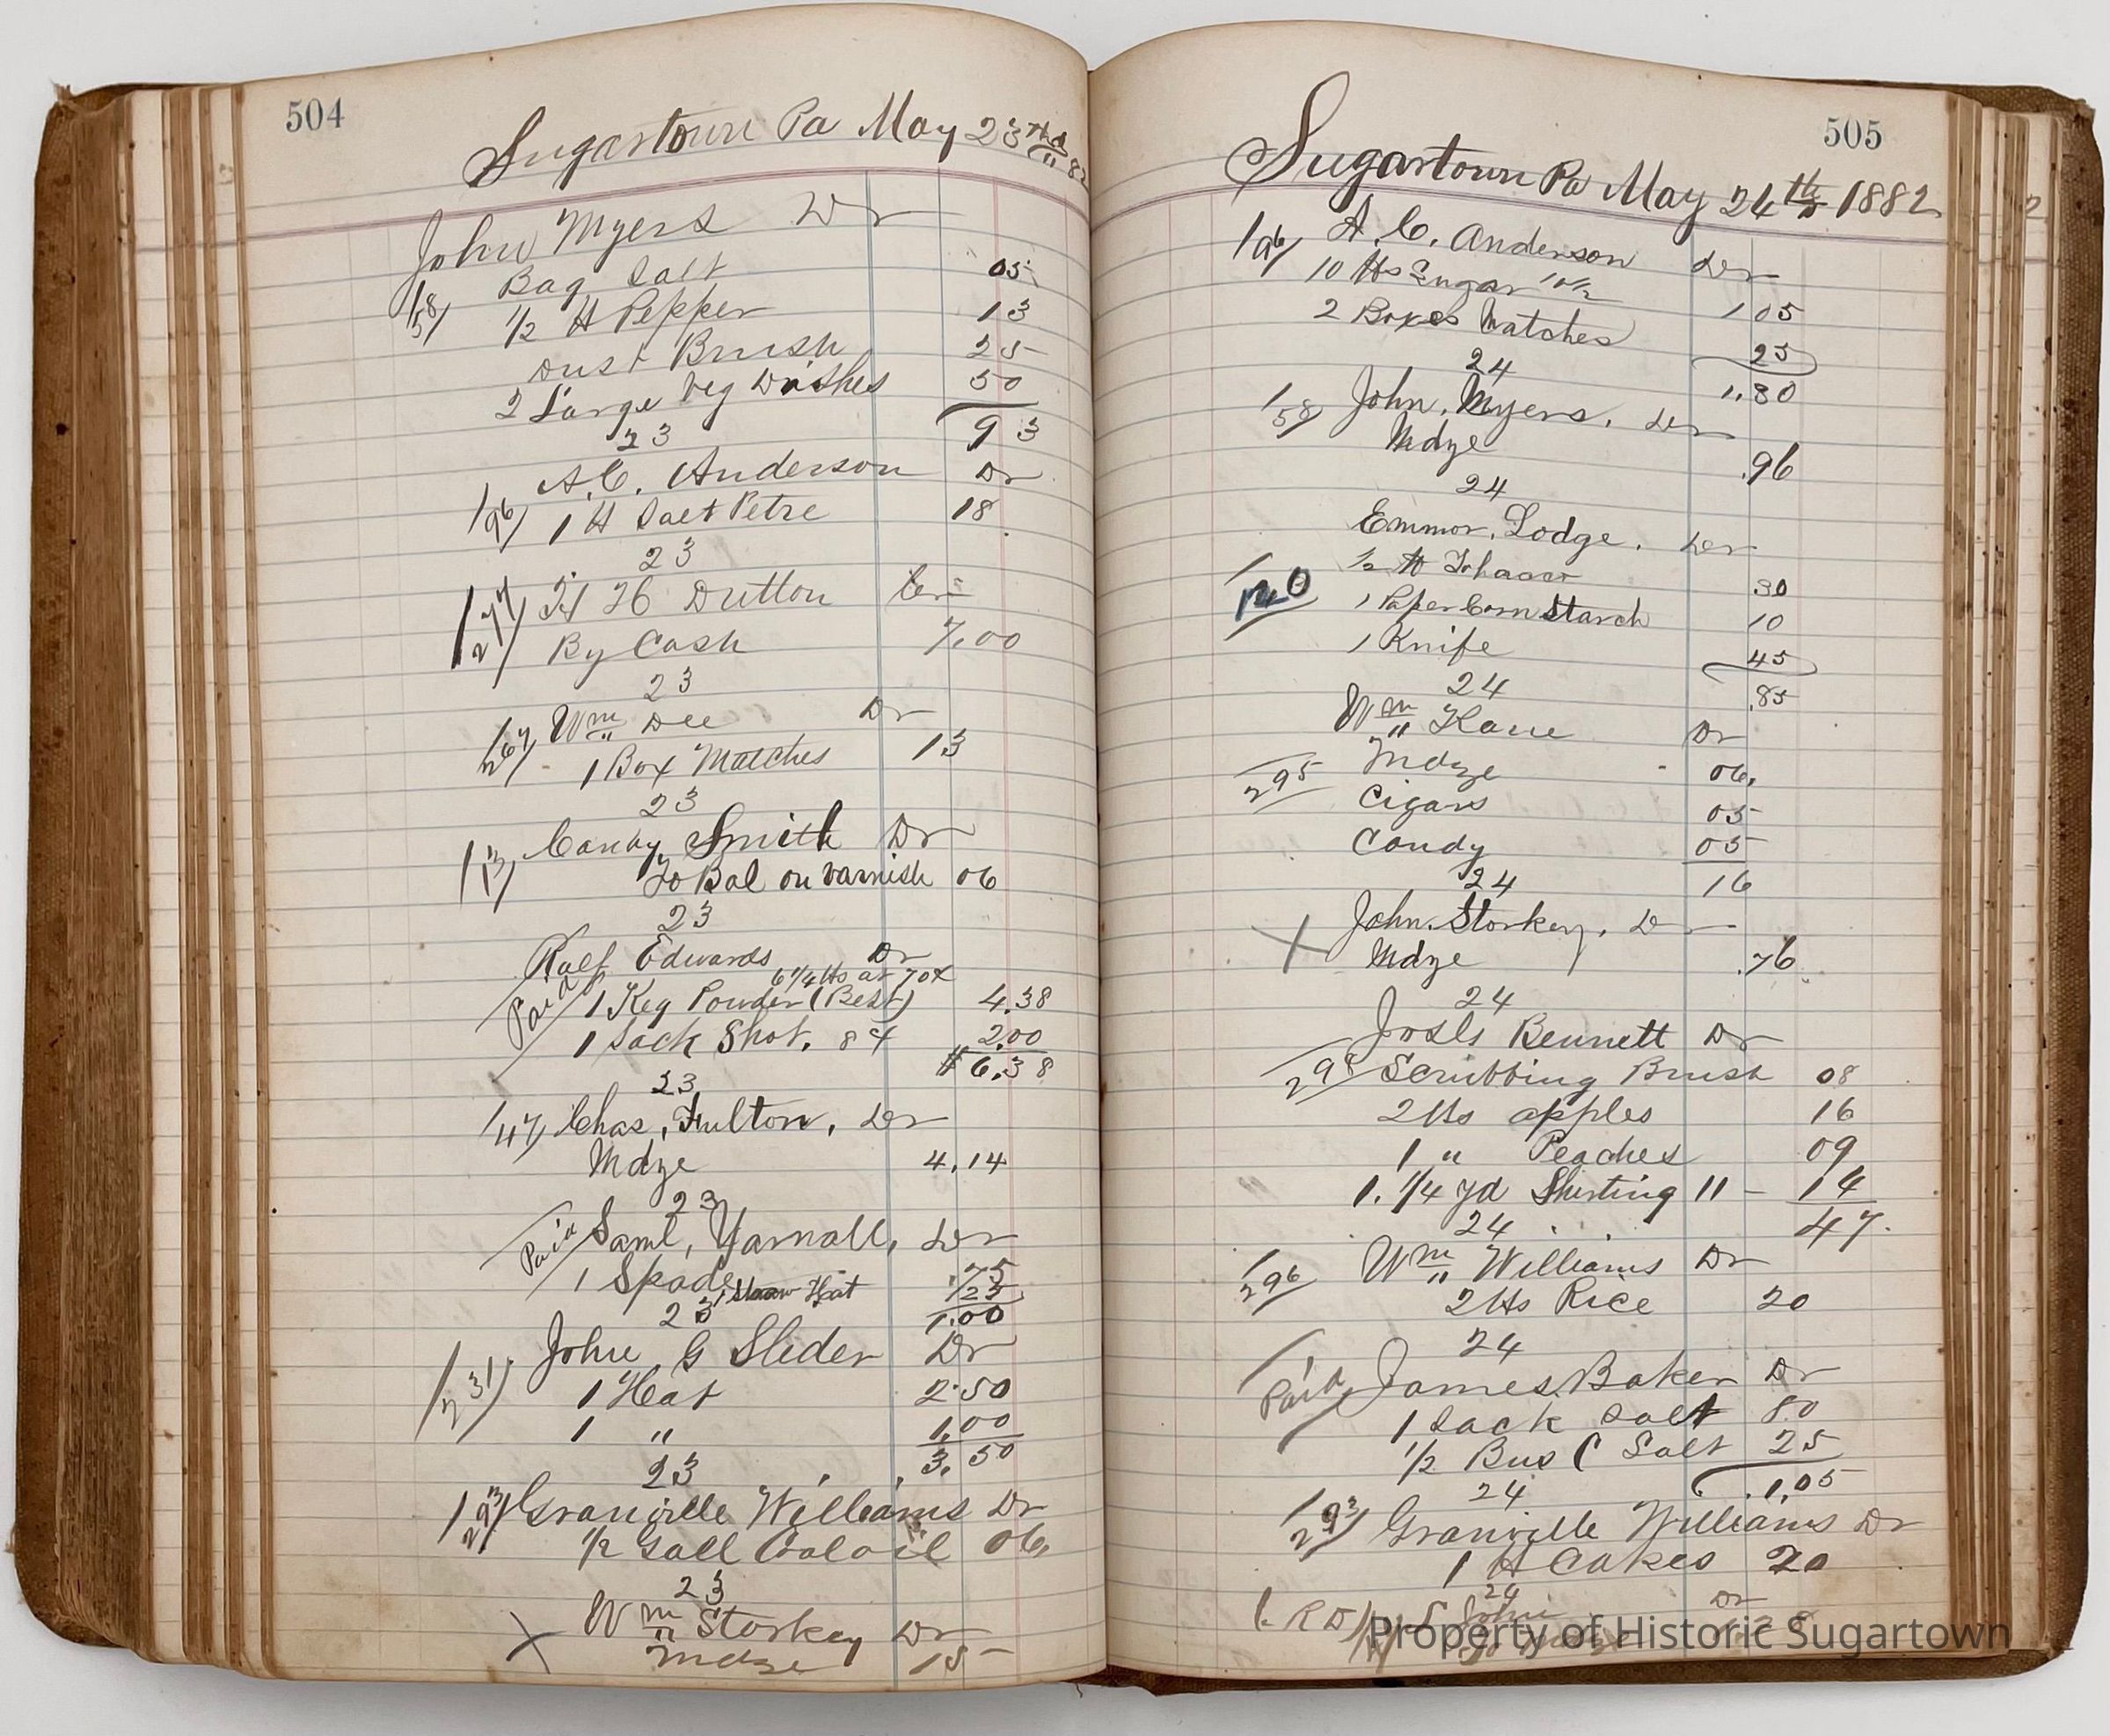 504
Sugartown Pa May 23rd " 82
John Myers Dr
Bag Salt 05
158/ 1/2 ℔ Pepper 13
Dust Brush 25
2 Large Veg Dishes 50
23 93
A. C. Anderson Dr
196/ 1 ℔ Salt Petre 18
23
277/ Dutton Cr
By Cash 7.00
23
267/ Wm Dee Dr
1 Box Matches 13
23
113/ Smith Dr
To Bal on varnish 06
23
Ralf Edwards Dr
6 1/4 ℔s at 70¢
Paid 1 Keg Powder (Best) 4.38
1 Sack Shot. 8 2.00
$6.38
23
147/ Chas, Fulton, Dr
Mdze 4.14
23
Paid Saml, Yarnall, Dr
1 Spade .75
1 Straw Hat /25
23 1.00
John G Slider Dr
231/ 1 Hat 2.50
1 " 1.00
23 3.50
293/ Granville Williams Dr
1/2 Gall Coal oil 06,
23
X Wm Storkey Dr
Mdze 15
505
Sugartown Pa May 24th 1882
196/ A. C. Anderson Dr
10 ℔s Sugar 10 1/2 1 05
2 Boxes Matches 25
24 1.30
158/ John, Myers, Dr
Mdze .96
24
Emmor, Lodge, Dr
120 1/2 ℔ Tobacco 30
1 Paper Corn Starch 10
1 Knife 45
24 .85
Wm Kane Dr
295 Mdze 06,
Cigars 05
Candy 05
24 16
X John, Storkey, Dr
Mdze .76
24
Bennett Dr
298 Scrubbing Brush 08
2 ℔s apples 16
1 " Peaches 09
1. 1/4 yd Shirting 11 - 14
24 47.
296 Wm Williams Dr
2 ℔s Rice 20
24
Paid James, Baker Dr
1 Sack Salt 80
1/2 Bus C Salt 25
24 1.05
293/ Granville Williams Dr
1 ℔ Cakes 20
24
Dr
Property of Historic Sugartown